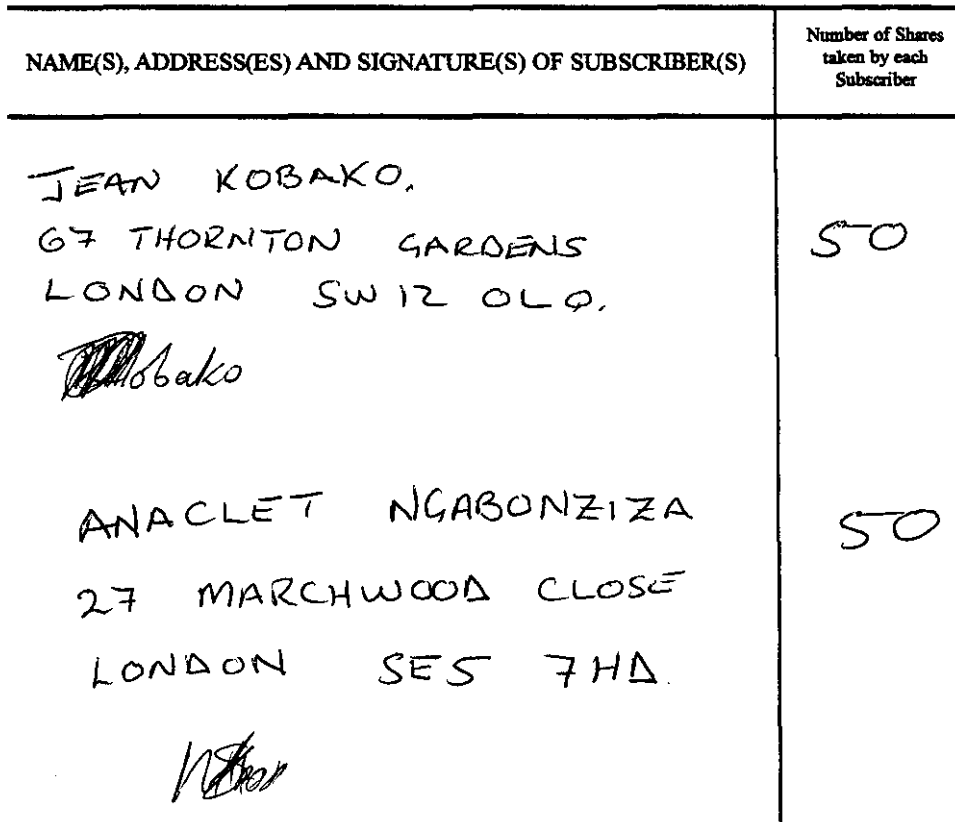 NAME(S), ADDRESS(ES) AND SIGNATURE(S) OF SUBSCRIBER(S)
Number of Shares
taken by each
Subscriber
JEAN KOBAKO.
67 THORNTON GARDENS
LONDON SW12 0LQ.
50
Kobako
ANACLET NGABONZIZA
27 MARCHWOOD CLOSE
LONDON SE5 7HD.
50